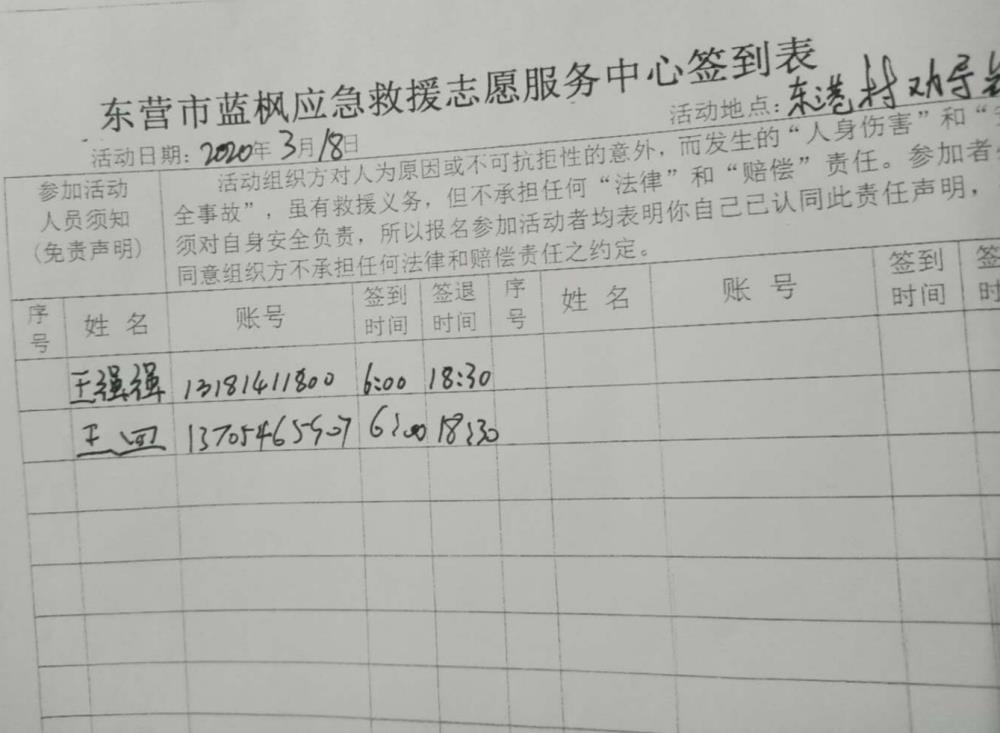 东营市蓝枫应急救援志愿服务中心签到表
活动日期：2020年3月18日 活动地点：东港村劝导
参加活动人员须知(免责声明)
活动组织方对人为原因或不可抗拒性的意外，而发生的“人身伤害”和“
全事故”，虽有救援义务，但不承担任何“法律”和“赔偿”责任。参加者
须对自身安全负责，所以报名参加活动者均表明你自己已认同此责任声明，
同意组织方不承担任何法律和赔偿责任之约定。
序号 姓名 账号 签到时间 签退时间 序号 姓名 账号 签到时间 签 时
王强强 13181411800 6:00 18:30
王四 13705465907 6:00 18:30